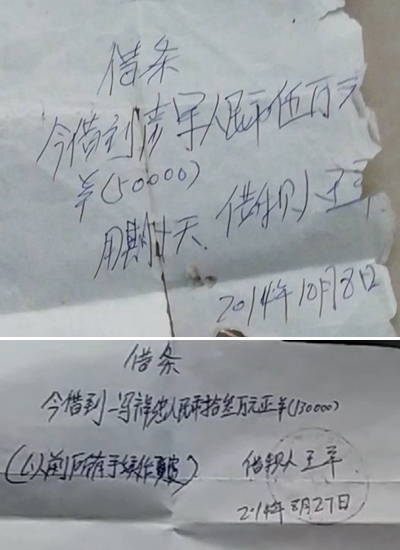 借条
今借到彦军人民币伍万元
羊(50000)
用期十天. 借款人 王军
2014年10月8日
借条
今借到冯祥纯人民币拾叁万元正羊(130000)
(以前所有手续作废)
借款人 王军
2014年8月27日